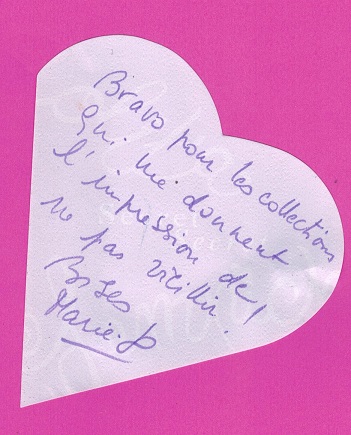 Bravo pour les collections
Qui me donnent
l'impression de
ne pas vieillir !
Bises
Marie-Jo